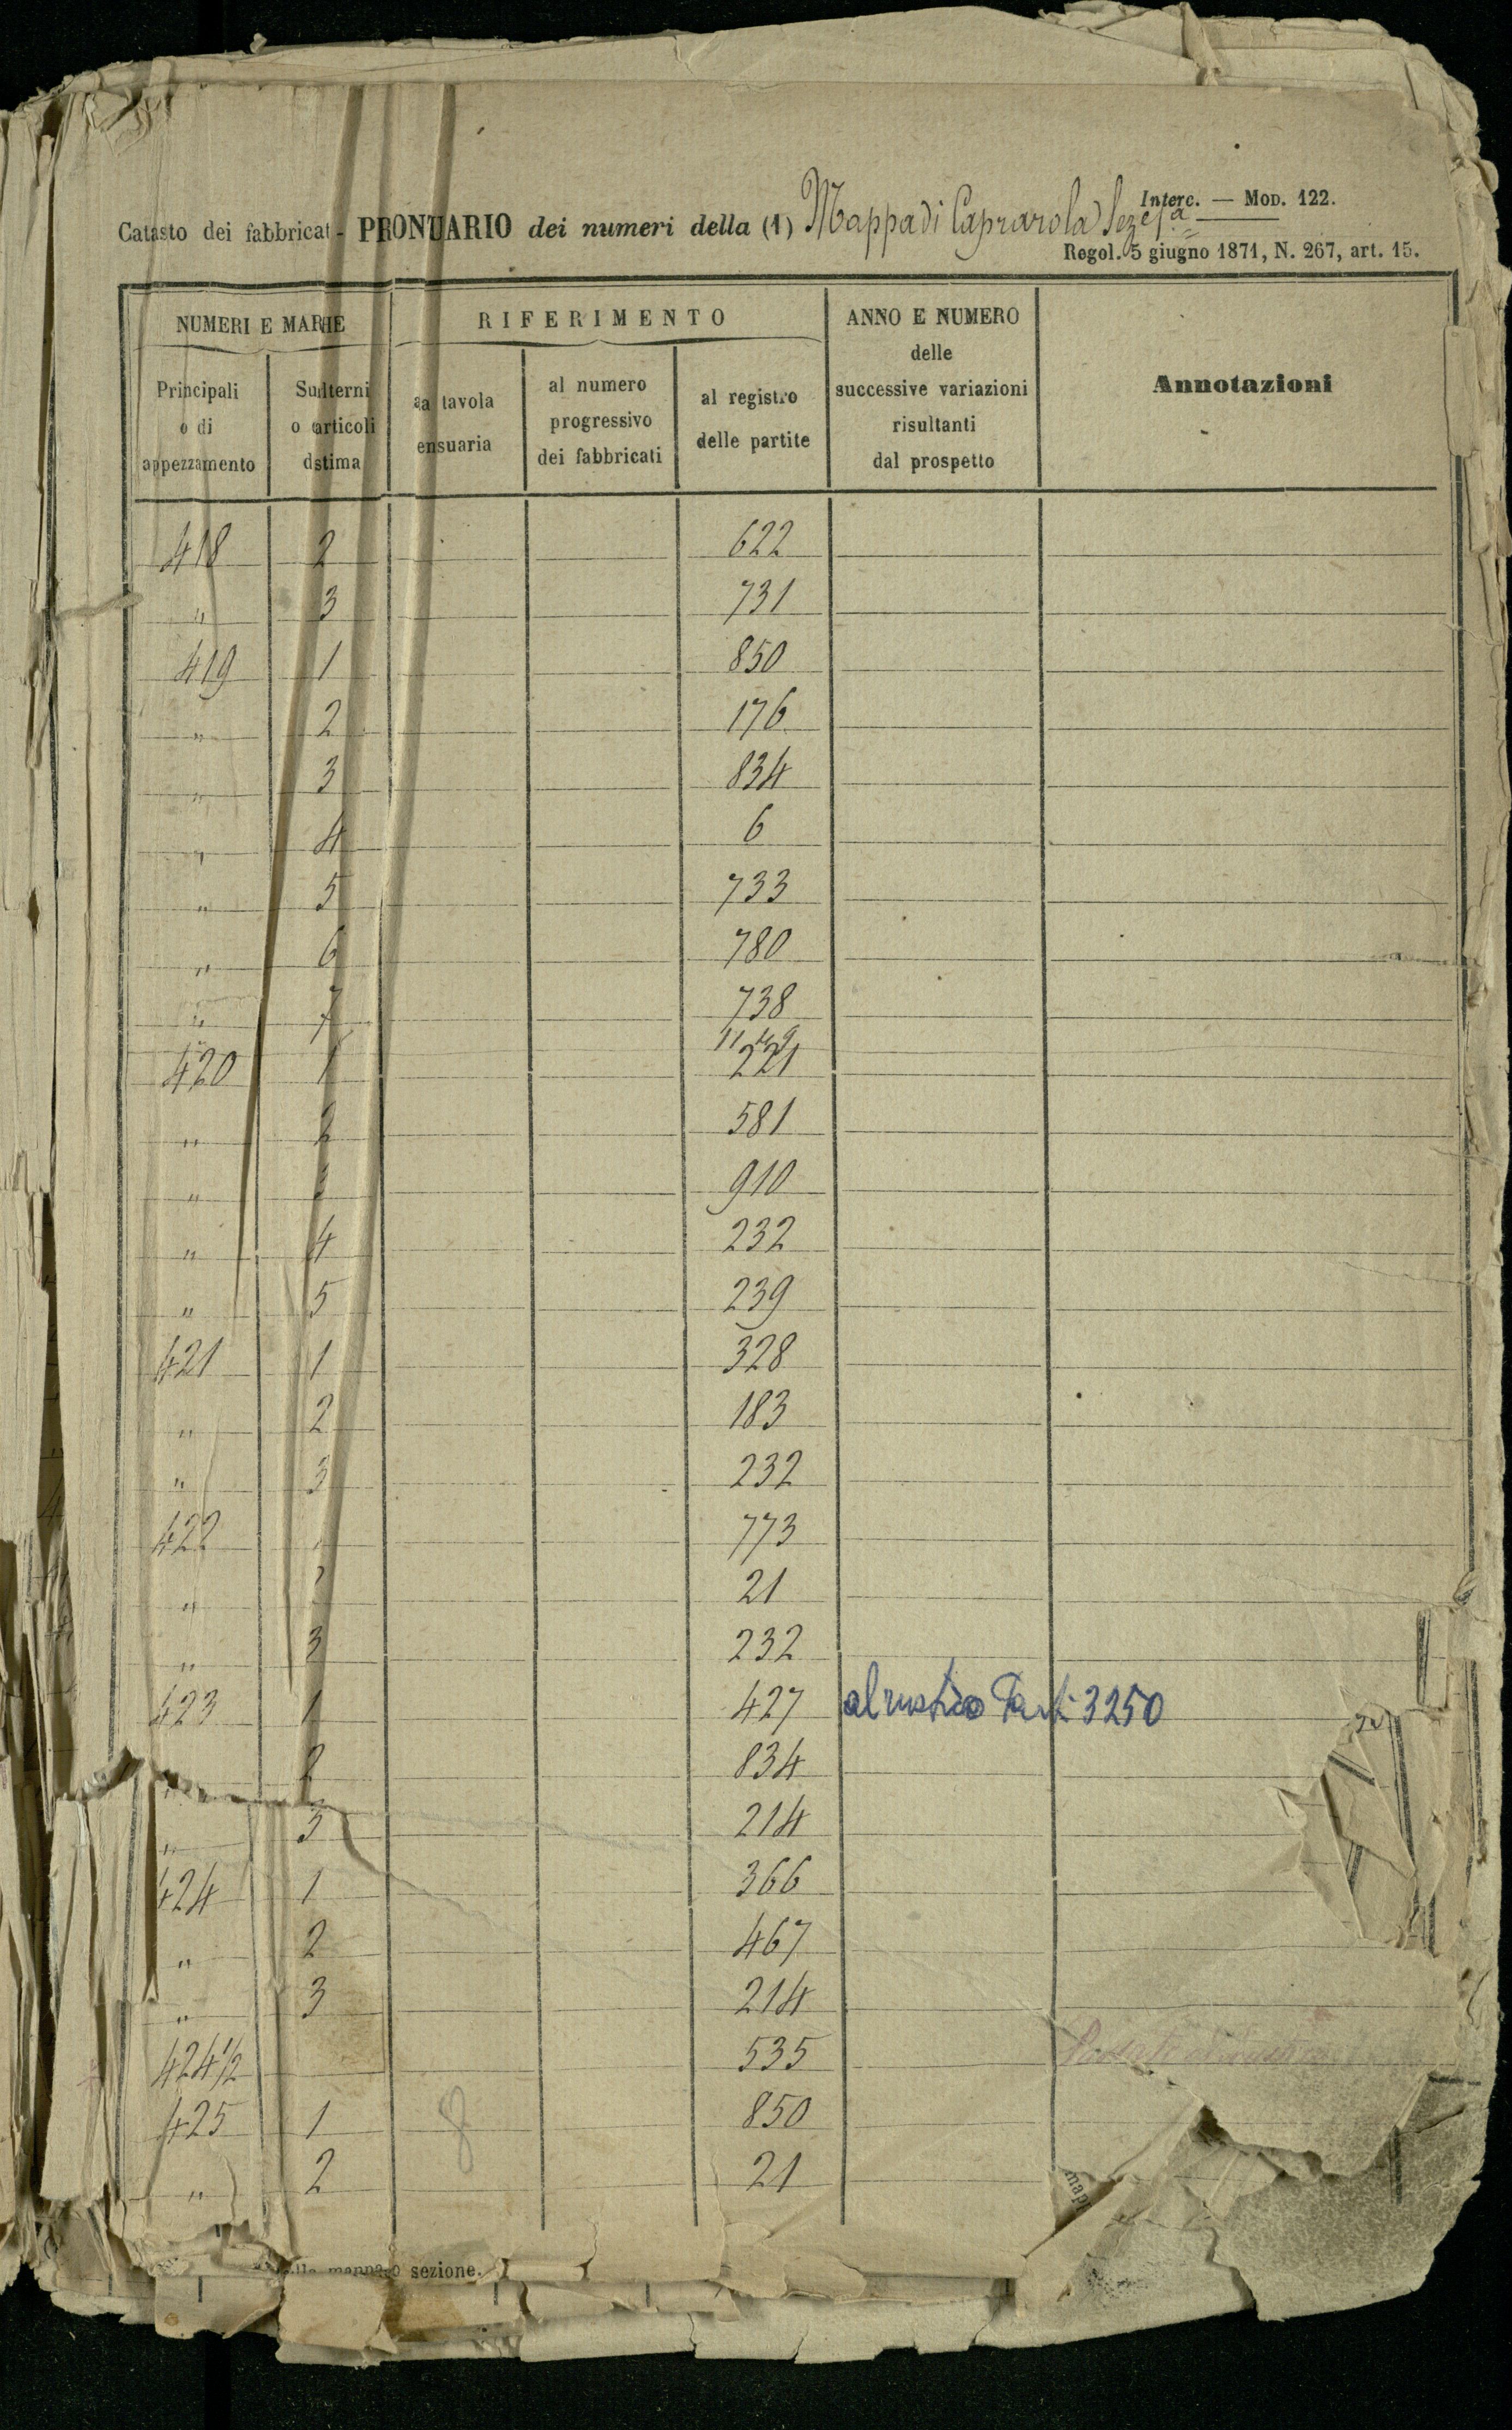 Interc. — Mod. 122.
Catasto dei fabbricat - PRONTUARIO dei numeri della (1) Mappa di Caprarola Seze 1ª
Regol. 5 giugno 1871, N. 267, art. 15.
NUMERI E MAPPE RIFERIMENTO ANNO E NUMERO delle successive variazioni risultanti dal prospetto Annotazioni
Principali o di appezzamento
o articoli
tavola
al numero progressivo dei fabbricati
al registro delle partite
418 2 622
" 3 731
419 1 850
" 2 176
" 3 834
" 4 6
" 5 733
" 6 780
" 7 738
1149
420 1 221
" 2 581
" 3 910
" 4 232
" 5 239
421 1 328
" 2 183
" 3 232
422 773
" 2 21
" 3 232
423 1 427 al rustico Part. 3250
" 2 834
" 3 214
424 1 366
" 2 467
" 3 214
424 1/2 535
425 1 8 850
" 2 21
mappa o sezione.